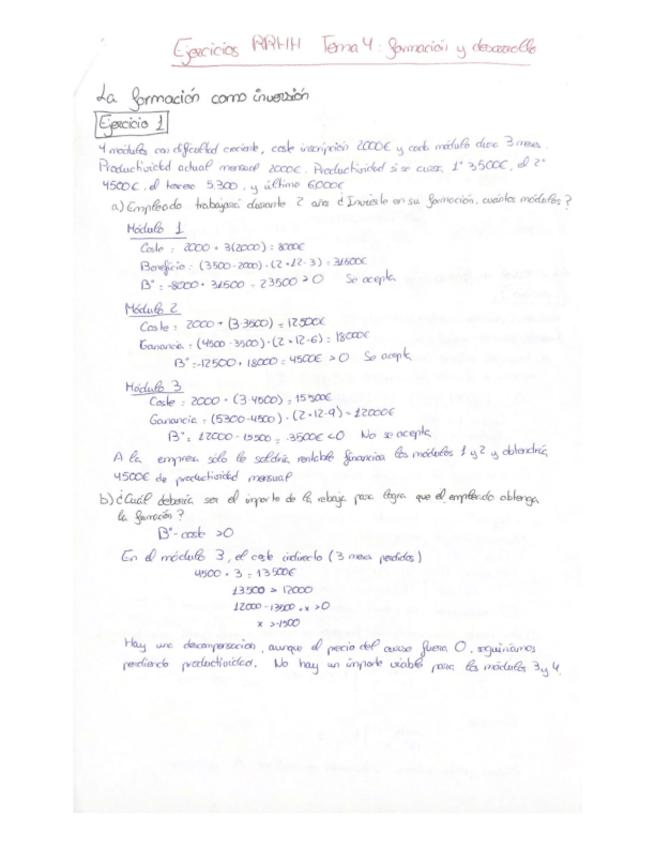 Ejercicios RRHH Tema 4: formación y desarrollo
La formación como inversión
Ejercicio 1
4 modulos con dificultad creciente, coste inscripción 2000€ y cada módulo dura 3 meses.
Productividad actual mensual 2000€. Productividad si se cursa, 1º 3500€, el 2º
4500€, el tercero 5.300, y último 6000€
a) Empleado trabajará durante 2 años ¿Invierte en su formación, cuántos módulos?
Módulo 1
Coste: 2000 + 3(2000) = 8000€
Beneficio: (3500-2000)·(2·12-3) = 31500€
Bº = -8000 + 31500 = 23500 > 0 Se acepta
Módulo 2
Coste: 2000 + (3·3500) = 12500€
Ganancia: (4500-3500)·(2·12-6) = 18000€
Bº = -12500 + 18000 = 4500€ > 0 Se acepta
Módulo 3
Coste: 2000 + (3·4500) = 15500€
Ganancia: (5300-4500)·(2·12-9) = 12000€
Bº = 12000 - 15500 = -3500€ < 0 No se acepta
A la empresa sólo le saldría rentable financiar los módulos 1 y 2 y obtendría
4500€ de productividad mensual
b) ¿Cuál debería ser el importe de la rebaja para lograr que el empleado obtenga
la formación?
Bº - coste > 0
En el módulo 3, el coste indirecto (3 meses perdidos)
4500 · 3 = 13500€
13500 > 12000
12000 - 13500 + x > 0
x > -1500
Hay una descompensación, aunque el precio del curso fuera 0, seguiríamos
perdiendo productividad. No hay un importe viable para los módulos 3 y 4.